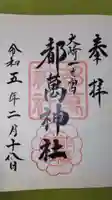 奉拝
大崎一之宮
都萬神社
令和五年二月十八日